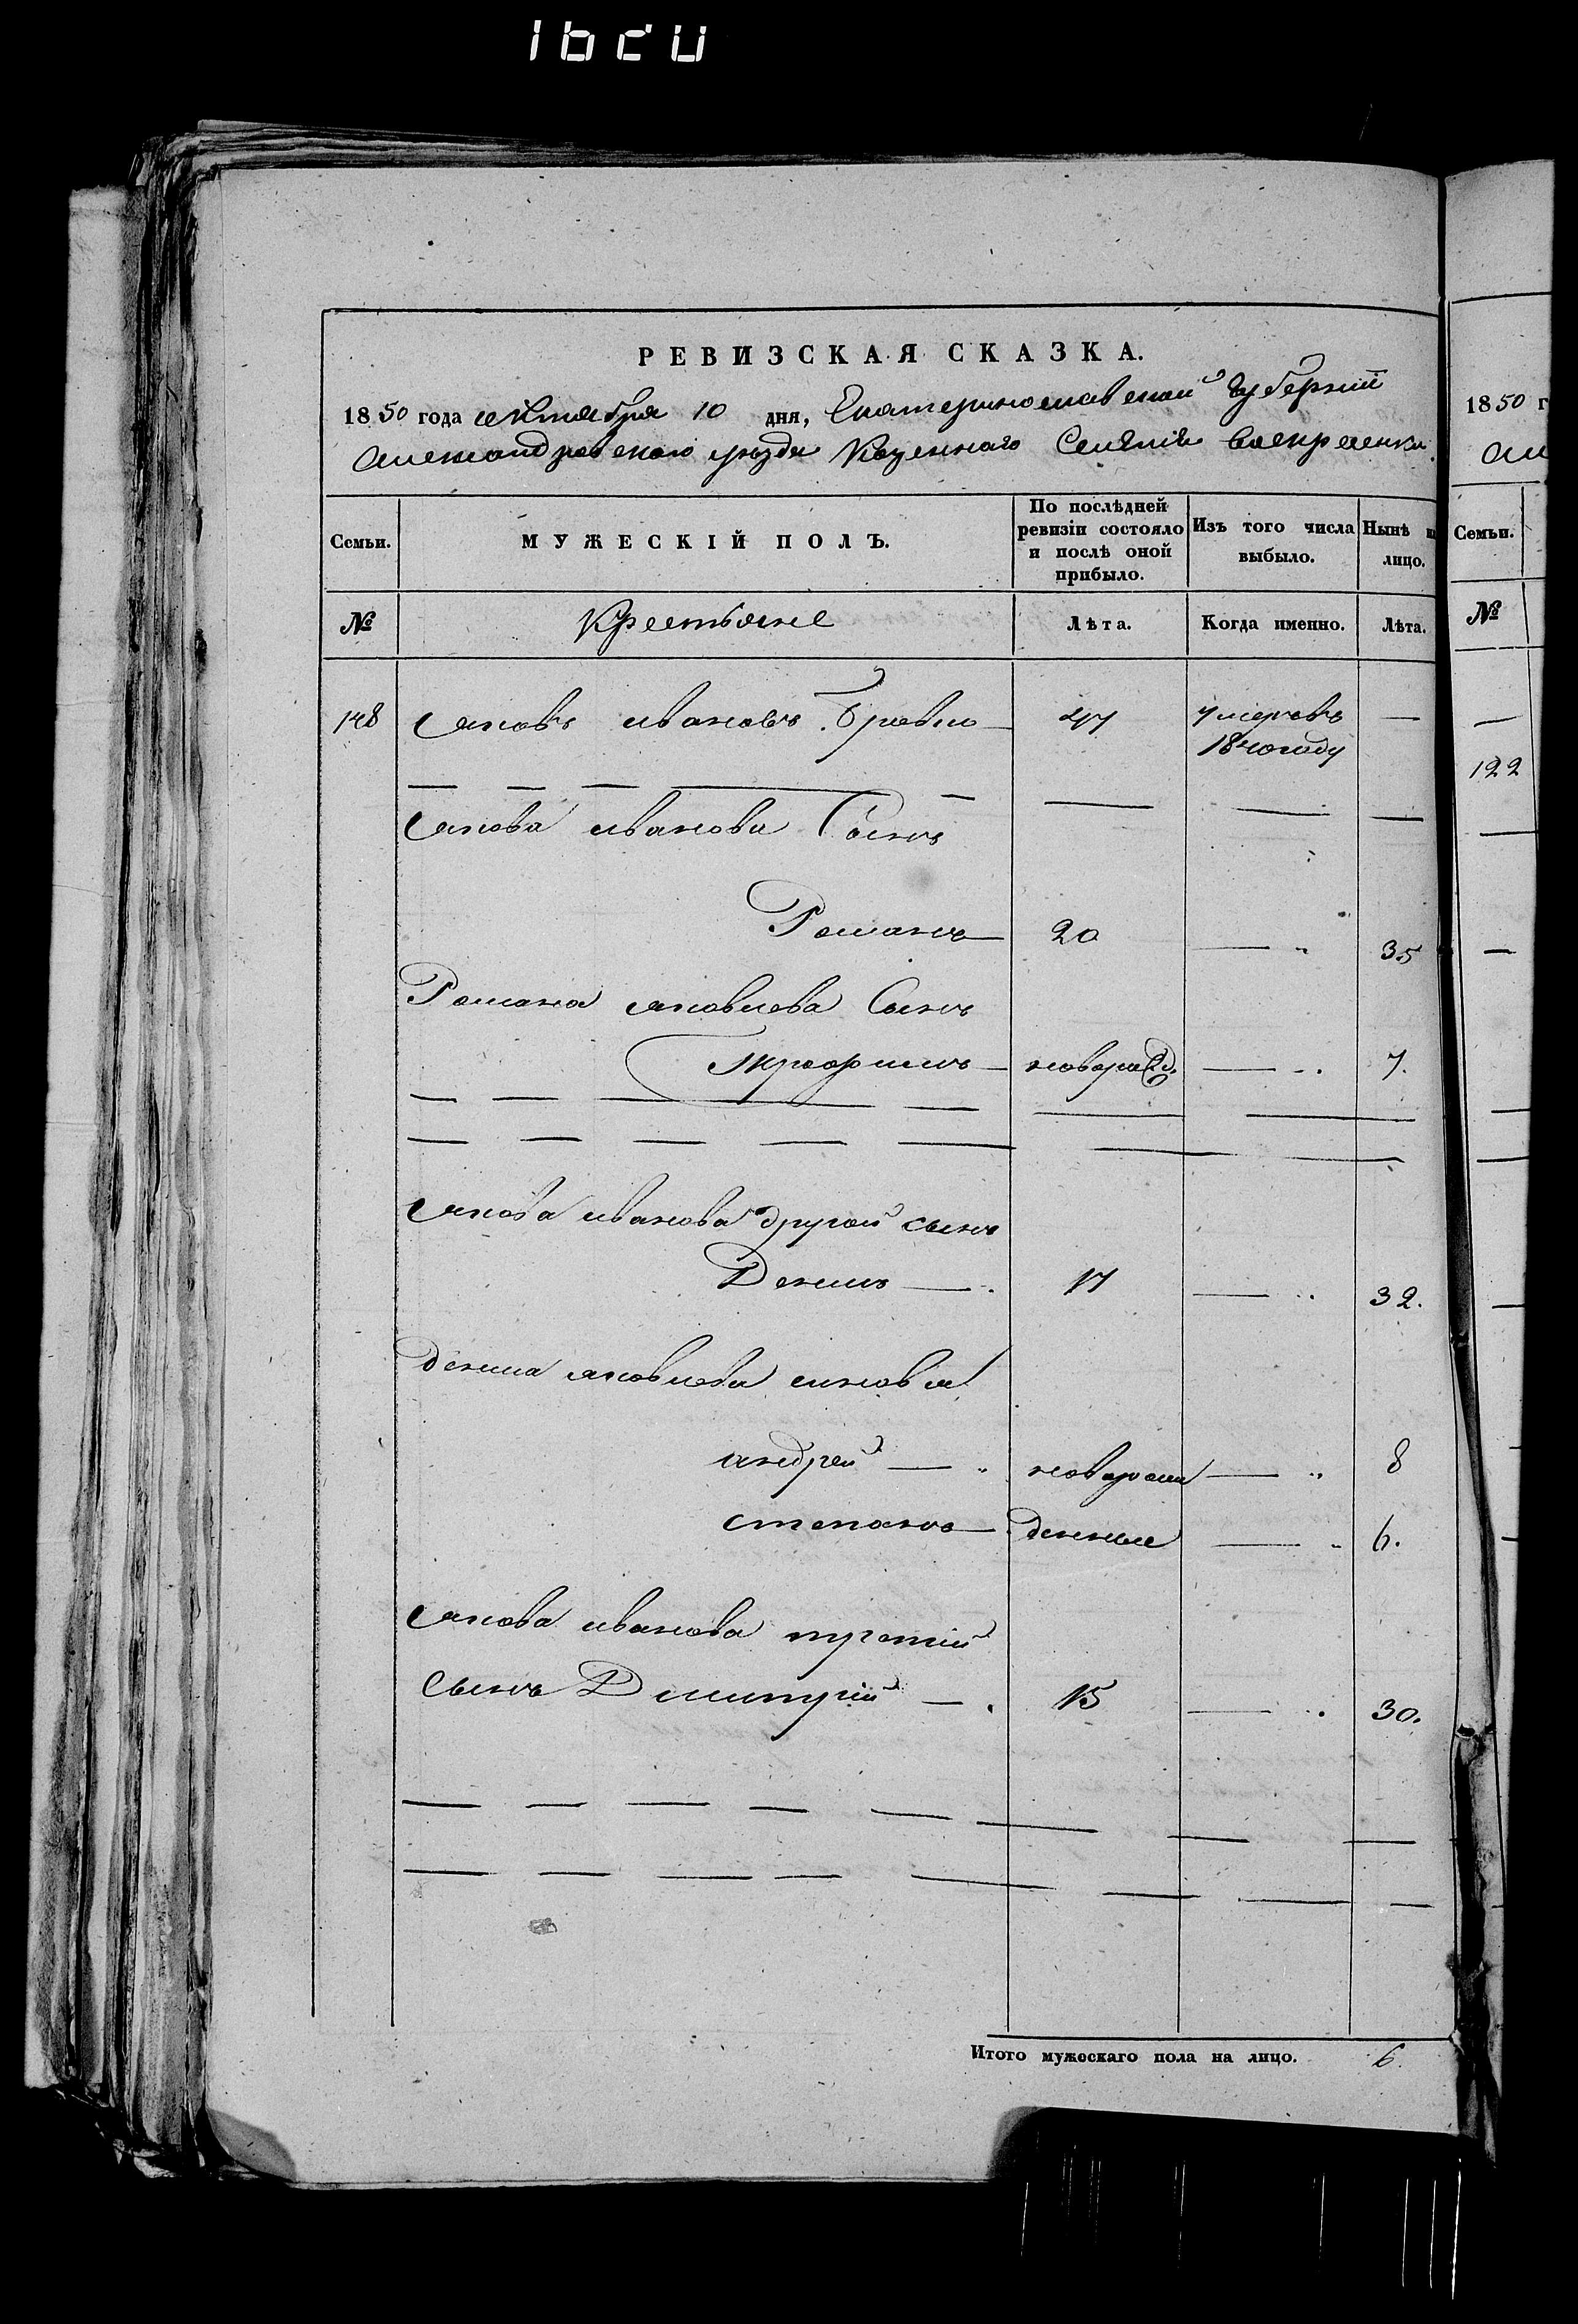 РЕВИЗСКАЯ СКАЗКА.
1850 года октября 10 дня, Екатеринославской Губернии
Александровскаго уезда Казеннаго Селения Воскресенки.
Семьи.
МУЖЕСКІЙ ПОЛЪ.
По послѣдней ревизіи состояло и послѣ оной прибыло.
Изъ того числа выбыло.
Нынѣ лицо.
№
Крестьяне
Лѣта.
Когда именно.
Лѣта.
148 Яковъ Ивановъ 47 умеръ въ —
1840 году
Якова Иванова Сынъ
Романъ — 20 — 35
Романа Яковлева Сынъ
Трофимъ — новорожд. — 7.
Якова Иванова другой сынъ
Денис — 17 — 32.
Дениса Яковлева синовья
андрей — новорож — 8
степанъ — денные — 6.
Якова Иванова третий
Сынъ Димитрій — 15 — 30.
Итого мужескаго пола на лицо. 6.
1850 г
Ал
Семьи.
№
122